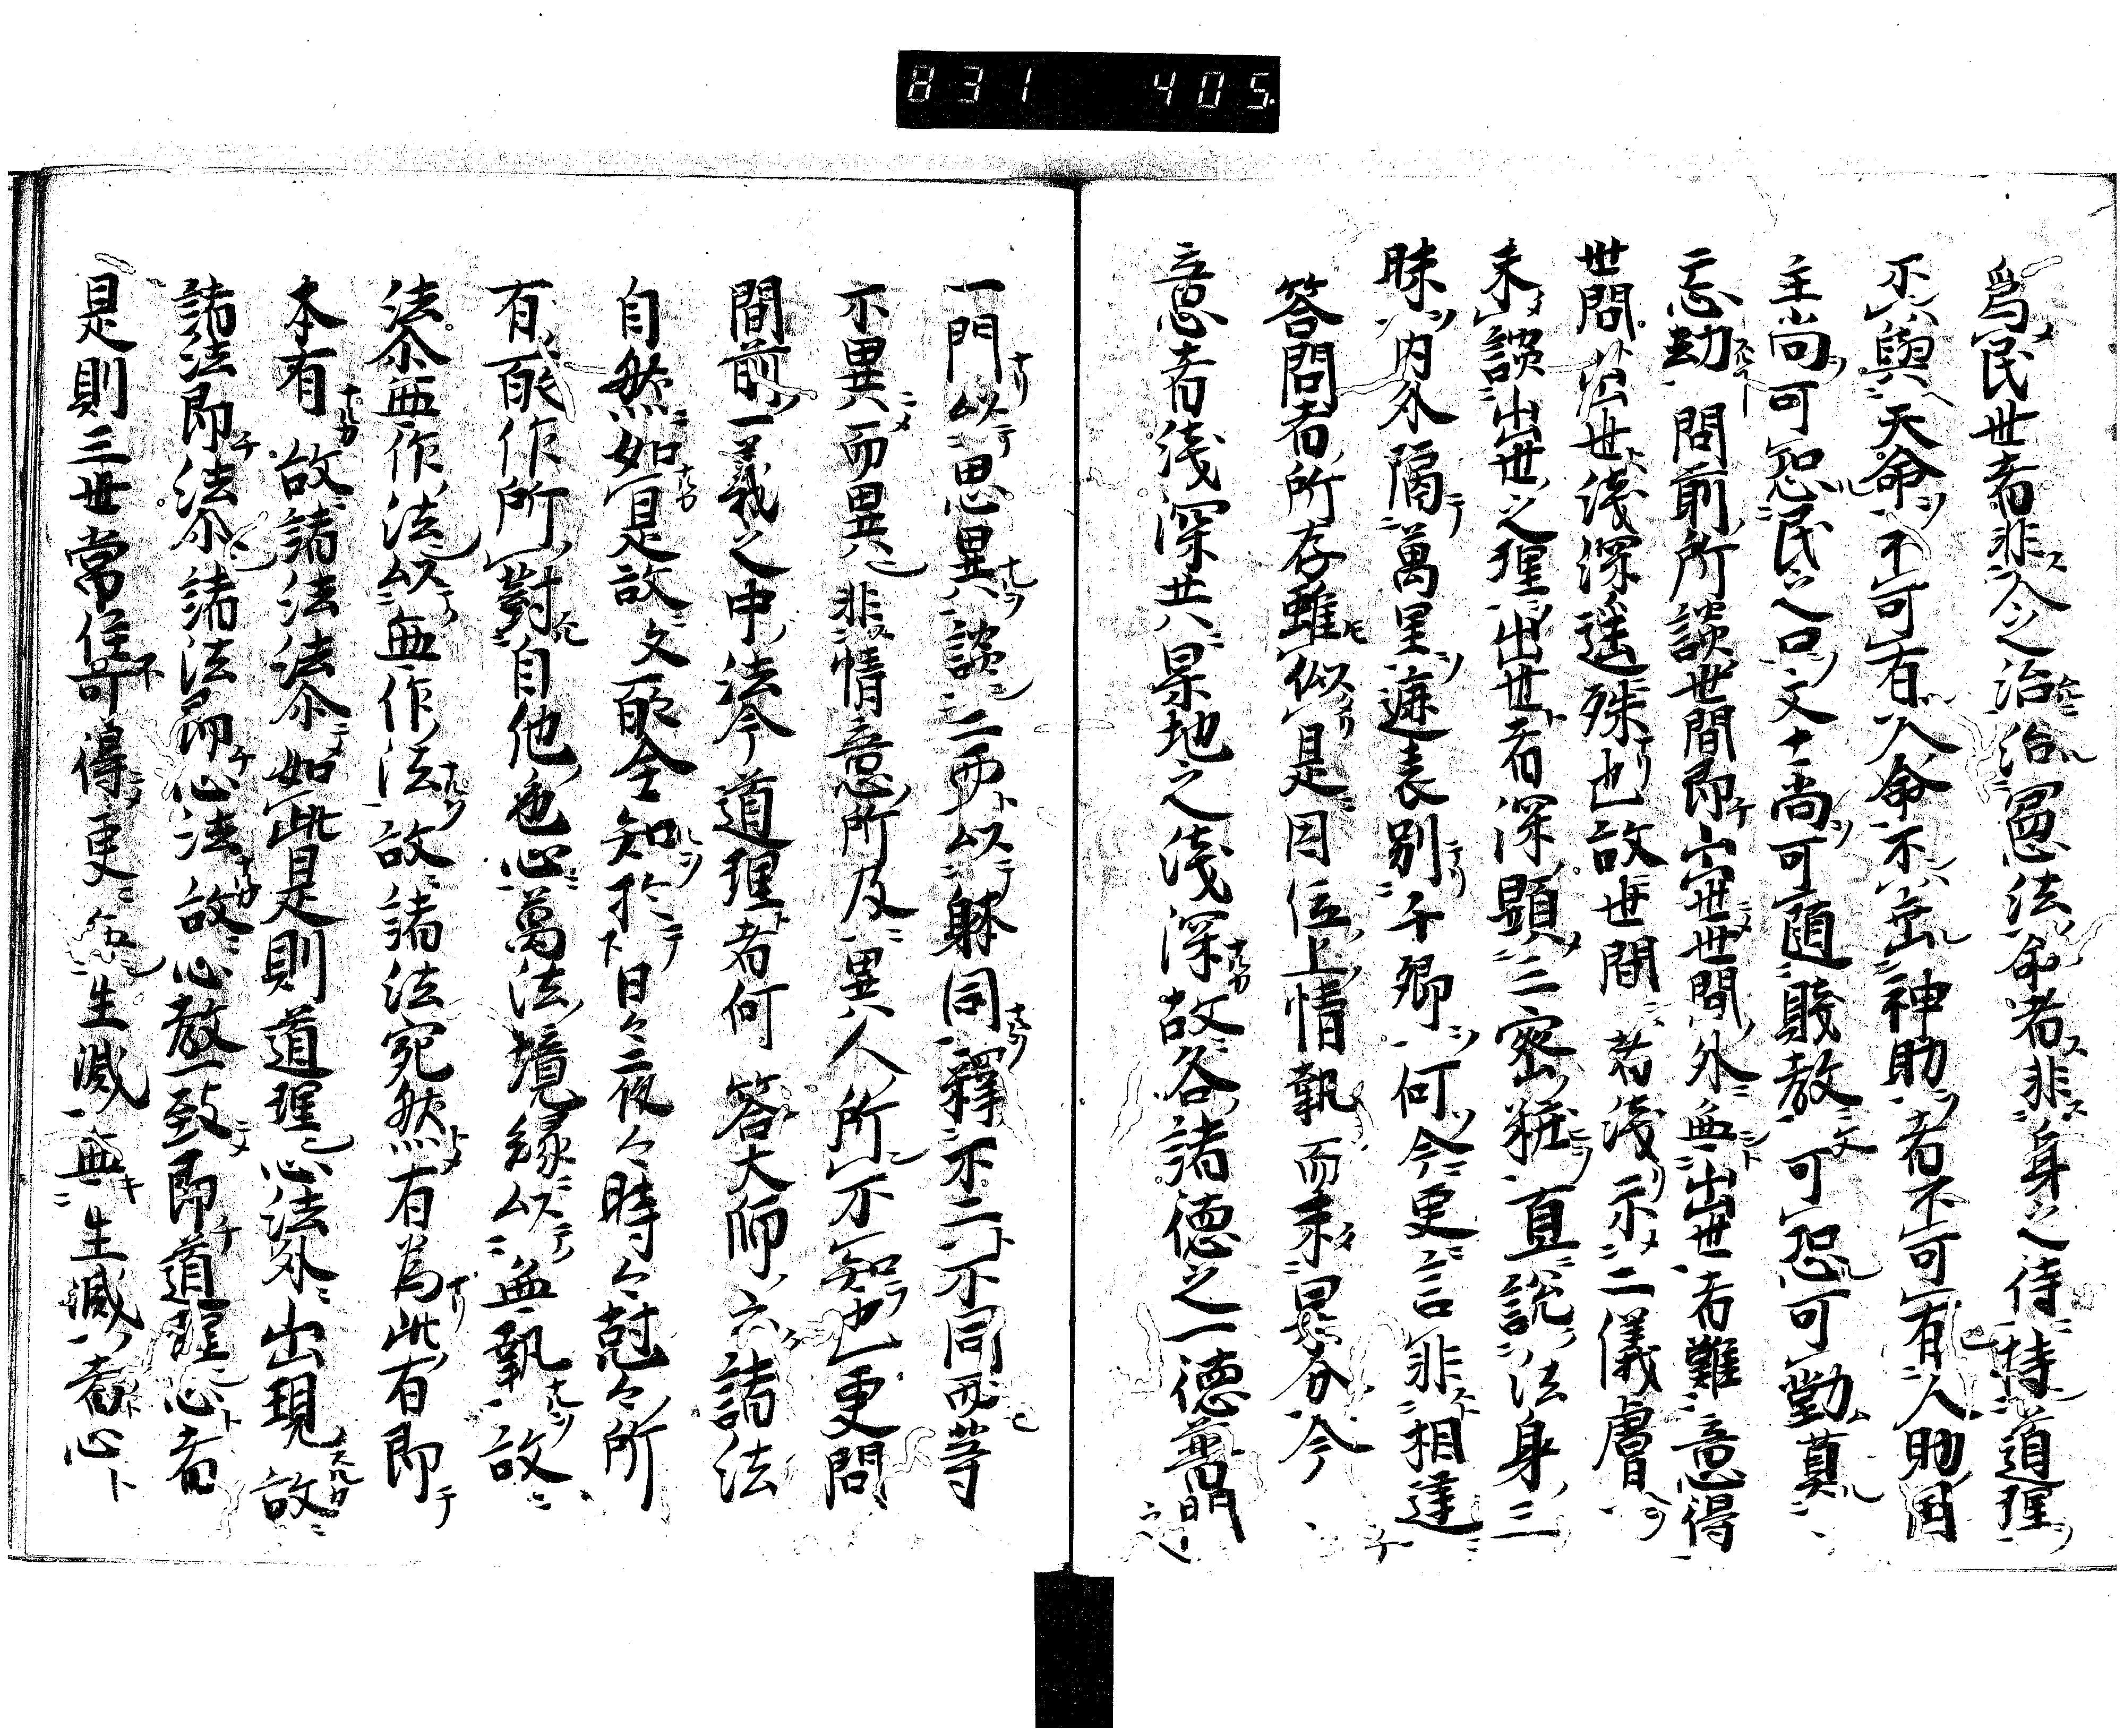 831 405
為民世者非人之治治罡法命者非身之待持道理
不與天命不可有人命不出神助者不可有人助因
主尚可恕民之口文十尚可随賎教可恐可勤莫
忘劫問前所談世間即出世世間外無出世者難意得
世間出世浅深遥殊也故世間者浅示二儀膚
未談出世之理出世者深顕三密粧直説法身三
昧内外隔萬里遊表別千郷何今更言非相違
答問者所存雖似是因位上情執而未果分今
意者浅深共果地之浅深故各諸徳之一徳普門
一門以思異談二而以躰同釋不二不同而等
不異而異非情意所及異人所不知也更問
間前一義之中法今道理者何答大師六諸法
自然如是故文能全知於日々二夜々時々剋々所
有能作所對自他色心萬法境縁以無執故
法尒無作法以無作法故諸法宛然有為此有即
本有故諸法法尒如此是則道理心法外出現故
諸法即法尒諸法即心法故心教一致即道理心者
是則三世常住可得更無生滅無生滅者心